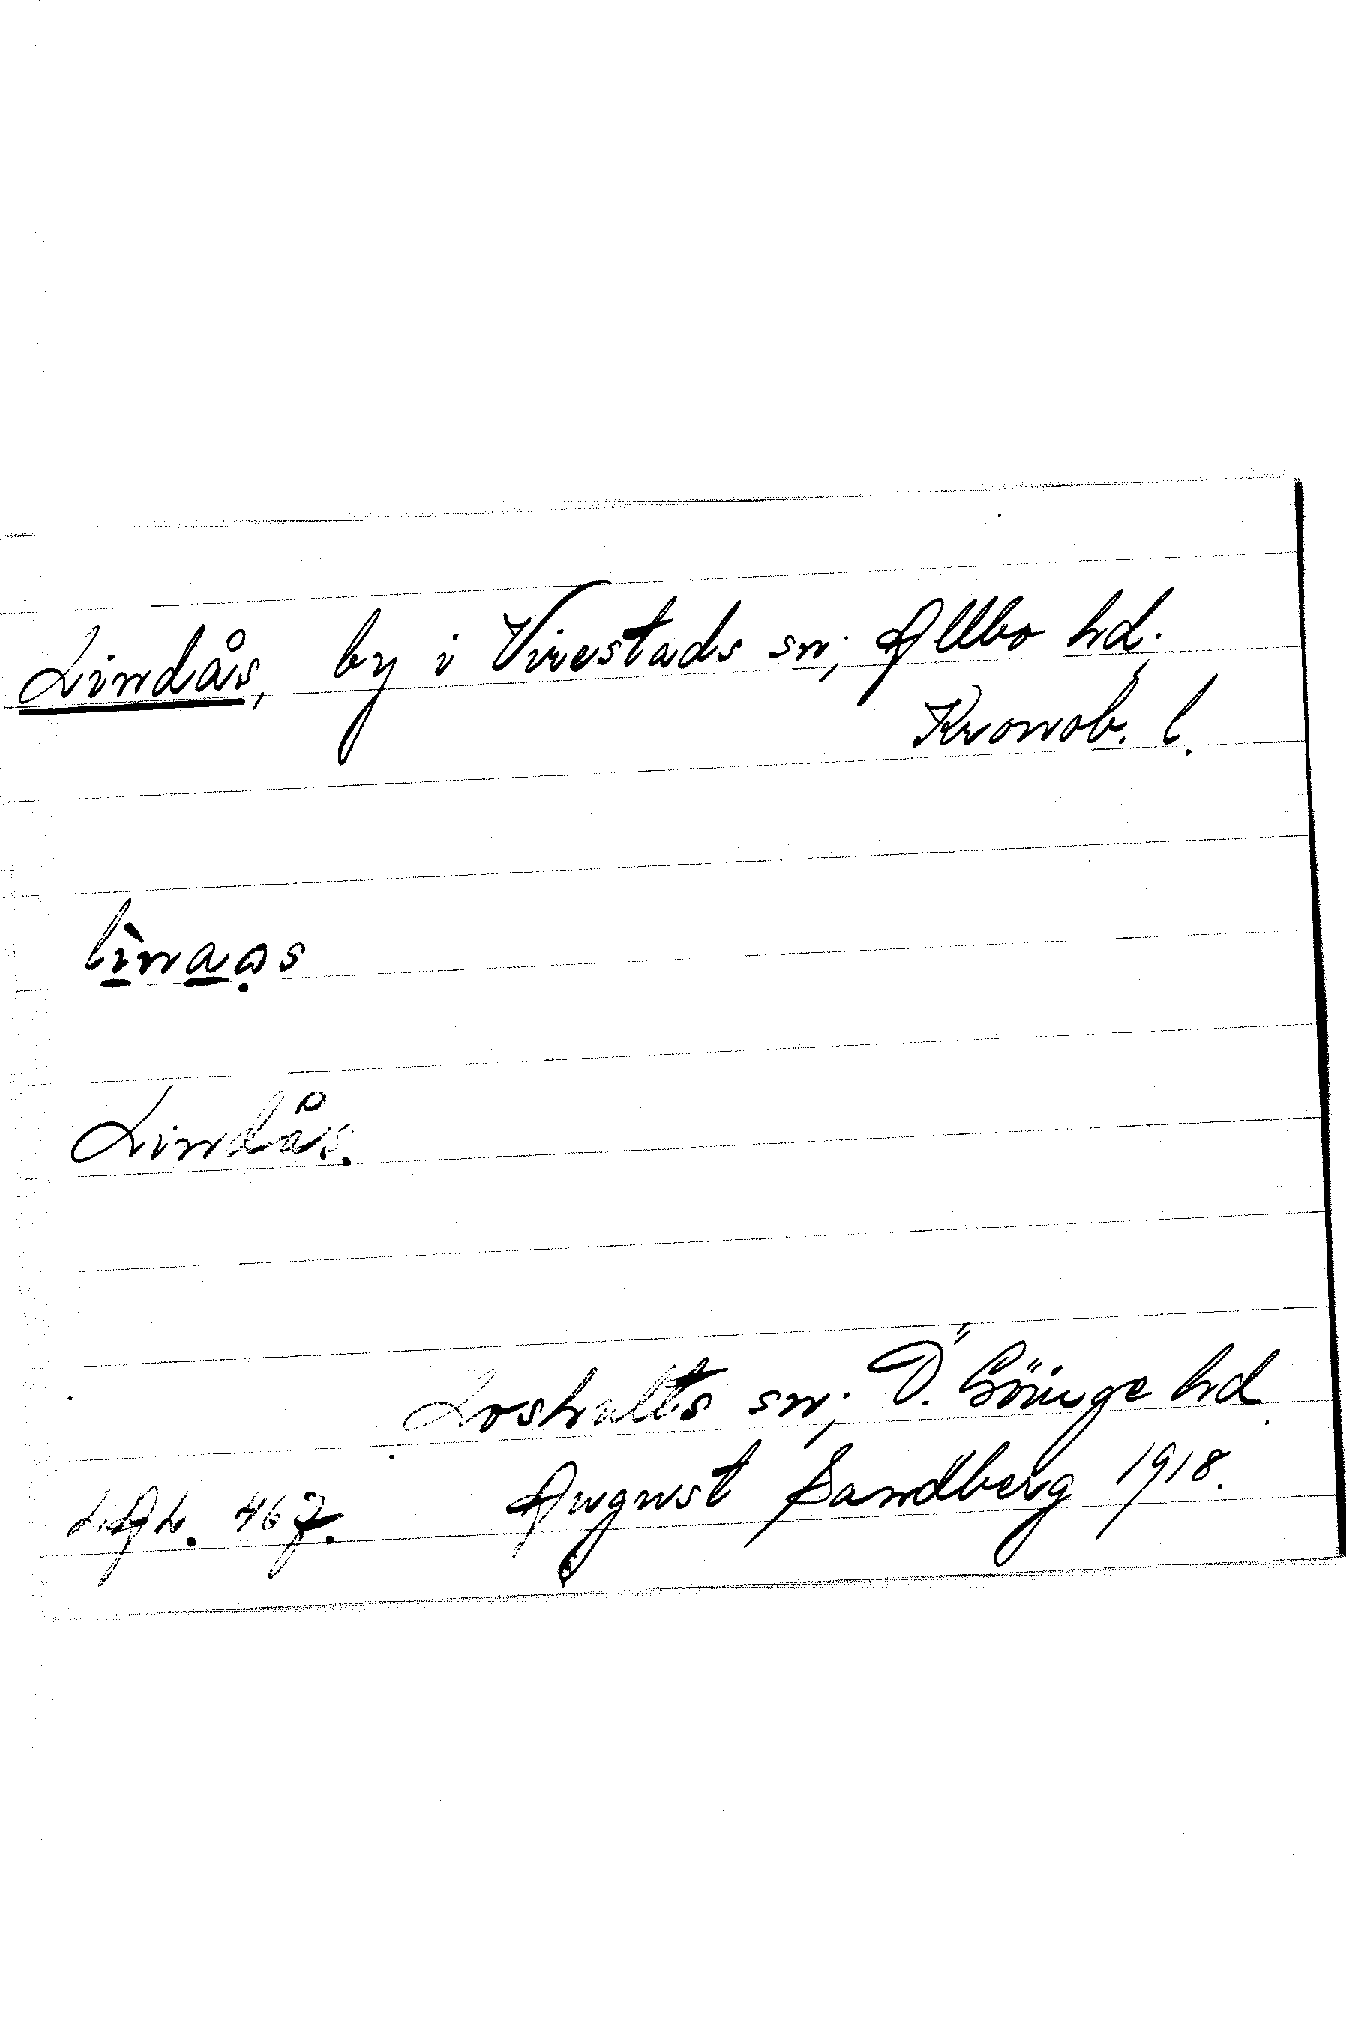 Lindås, by i Virestads sn; Allbo hd.
Kronob. l.
lìnaǫs
Lindås.
Loshults sn; Ö. Göinge hd.
LAL. 467. August Sandberg 1918.